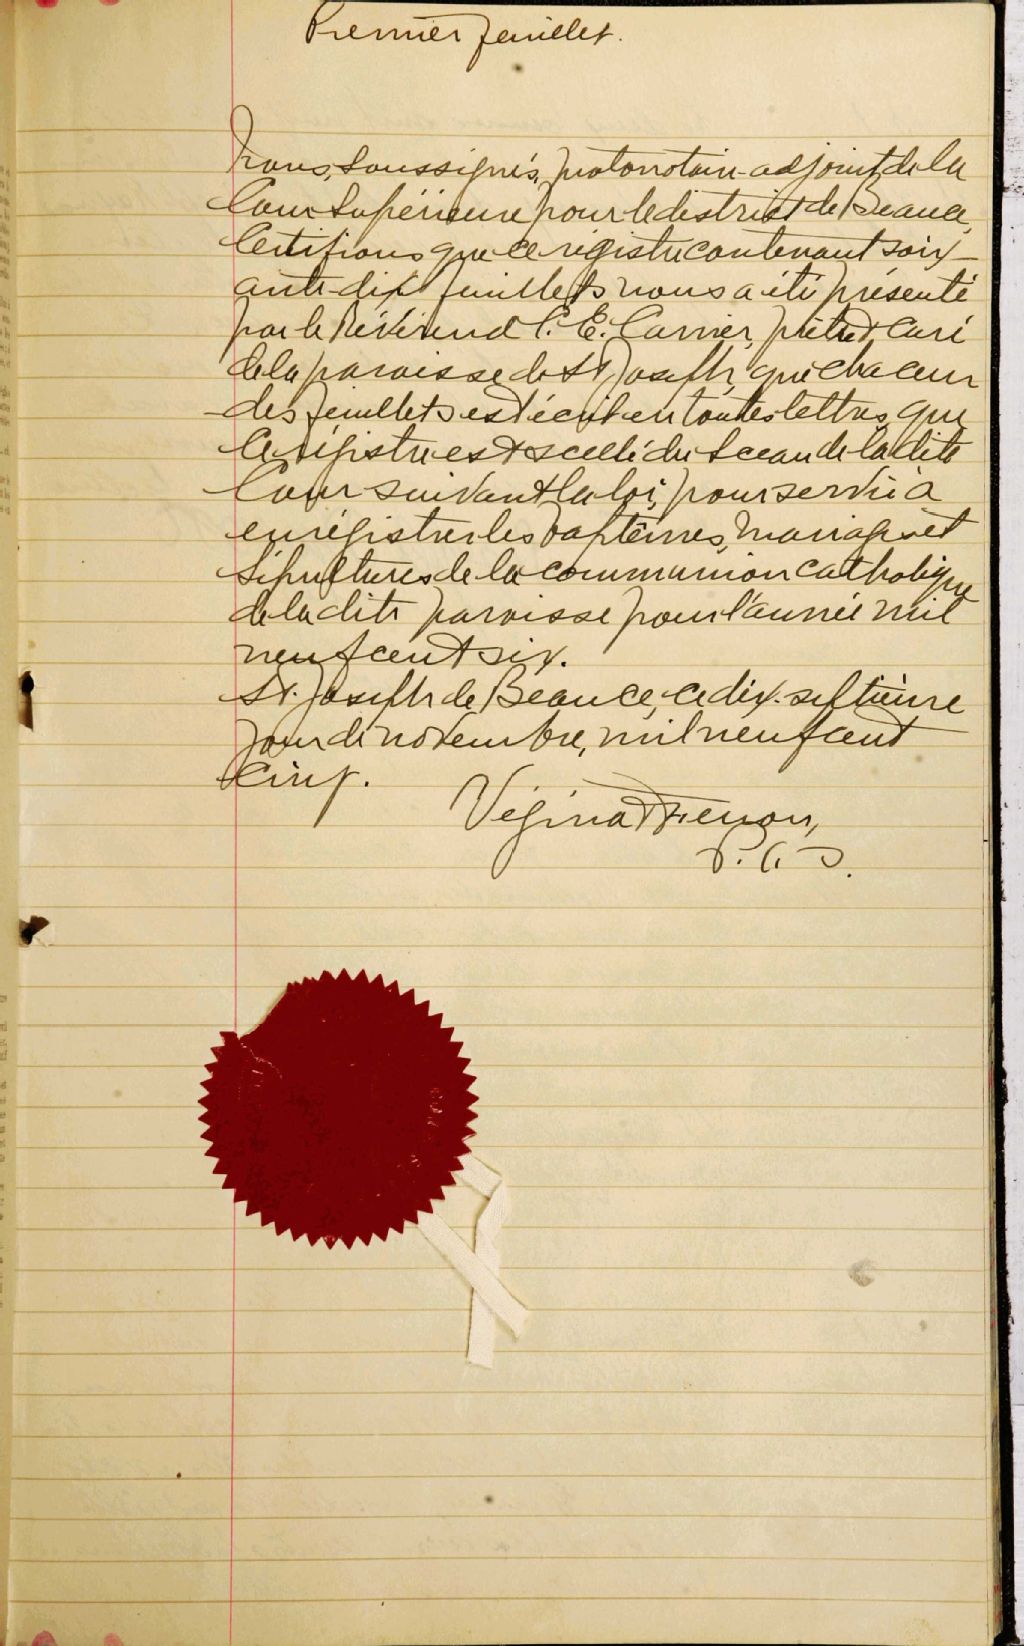 Premier feuillet.
Nous, soussignés, protonotaire-adjoint de la
Cour Supérieure pour le district de Beauce,
Certifions que ce régistre contenant soix-
ante-dix feuillets nous a été présenté
par le Révérend C. E. Carrier, prêtre & curé
de la paroisse de St. Joseph, que chacun
des feuillets est écrit en toutes lettres, que
le régistre est scellé du sceau de la dite
Cour suivant la loi, pour servir à
enrégistrer les baptêmes, mariages et
sépultures de la communion catholique
de la dite paroisse pour l'année mil
neuf cent six.
St. Joseph de Beauce, ce dix-septième
jour de novembre, mil neuf cent
cinq.
P. C. S.